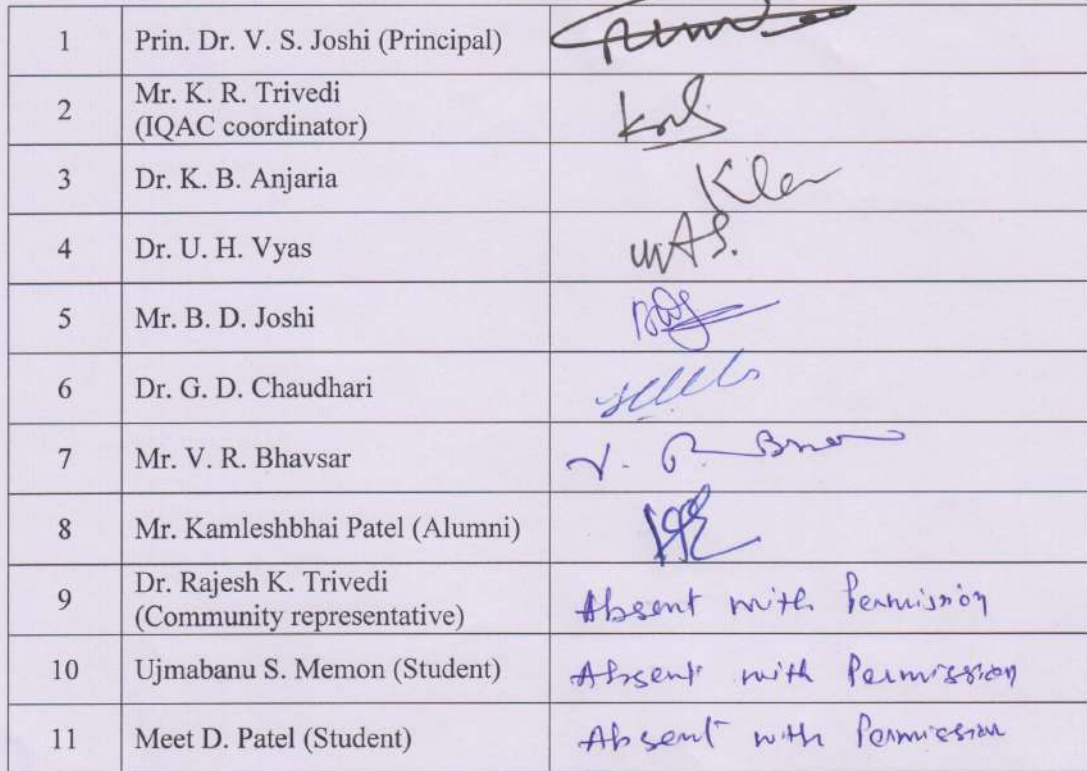 1 Prin. Dr. V. S. Joshi (Principal)
2 Mr. K. R. Trivedi
(IQAC coordinator)
3 Dr. K. B. Anjaria
4 Dr. U. H. Vyas
5 Mr. B. D. Joshi
6 Dr. G. D. Chaudhari
7 Mr. V. R. Bhavsar V. R.
8 Mr. Kamleshbhai Patel (Alumni)
9 Dr. Rajesh K. Trivedi
(Community representative) Absent with Permission
10 Ujmabanu S. Memon (Student) Absent with Permission
11 Meet D. Patel (Student) Absent with Permission